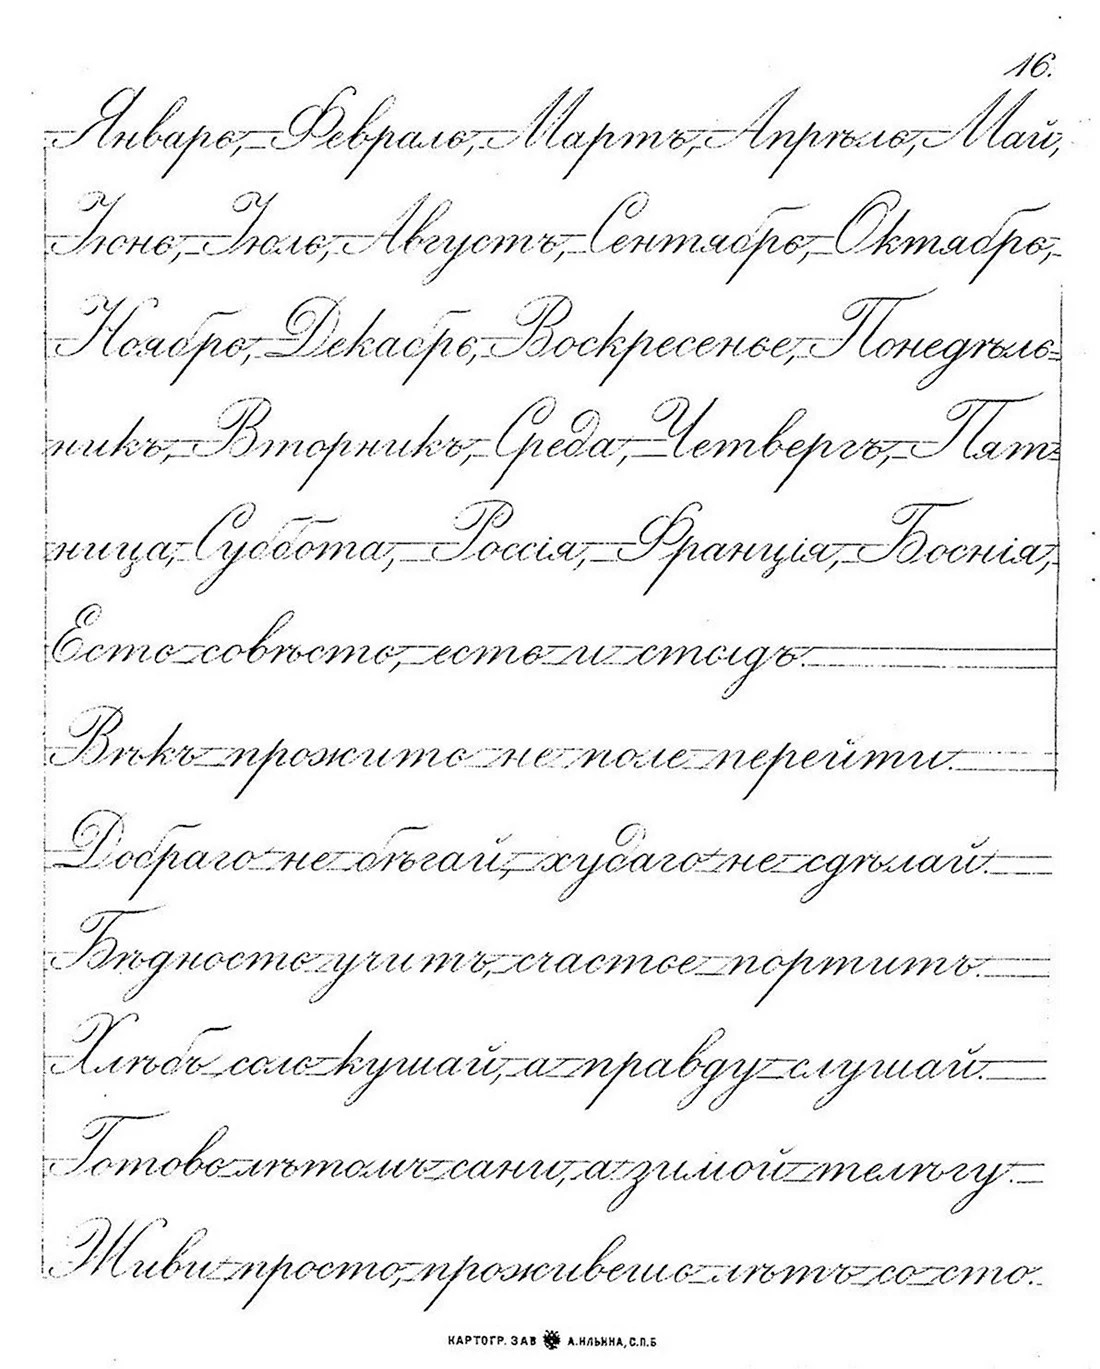 16.
Январь, Февраль, Мартъ, Апрѣль, Май,
Іюнь, Іюль, Августъ, Сентябрь, Октябрь,
Ноябрь, Декабрь, Воскресенье, Понедѣль=
никъ, Вторникъ, Среда, Четвергъ, Пят=
ница, Суббота, Россія, Франція, Боснія,
Есть совѣсть, есть и стыдъ.
Вѣкъ прожить не поле перейти.
Добраго не бѣгай, худаго не сдѣлай.
Бѣдность учитъ, счастье портитъ.
Хлѣбъ соль кушай, а правду слушай.
Готовь лѣтомъ сани, а зимой телѣгу.
Живи просто, проживешь лѣтъ со сто.
КАРТОГР. ЗАВ А. ИЛЬИНА, С.П.Б